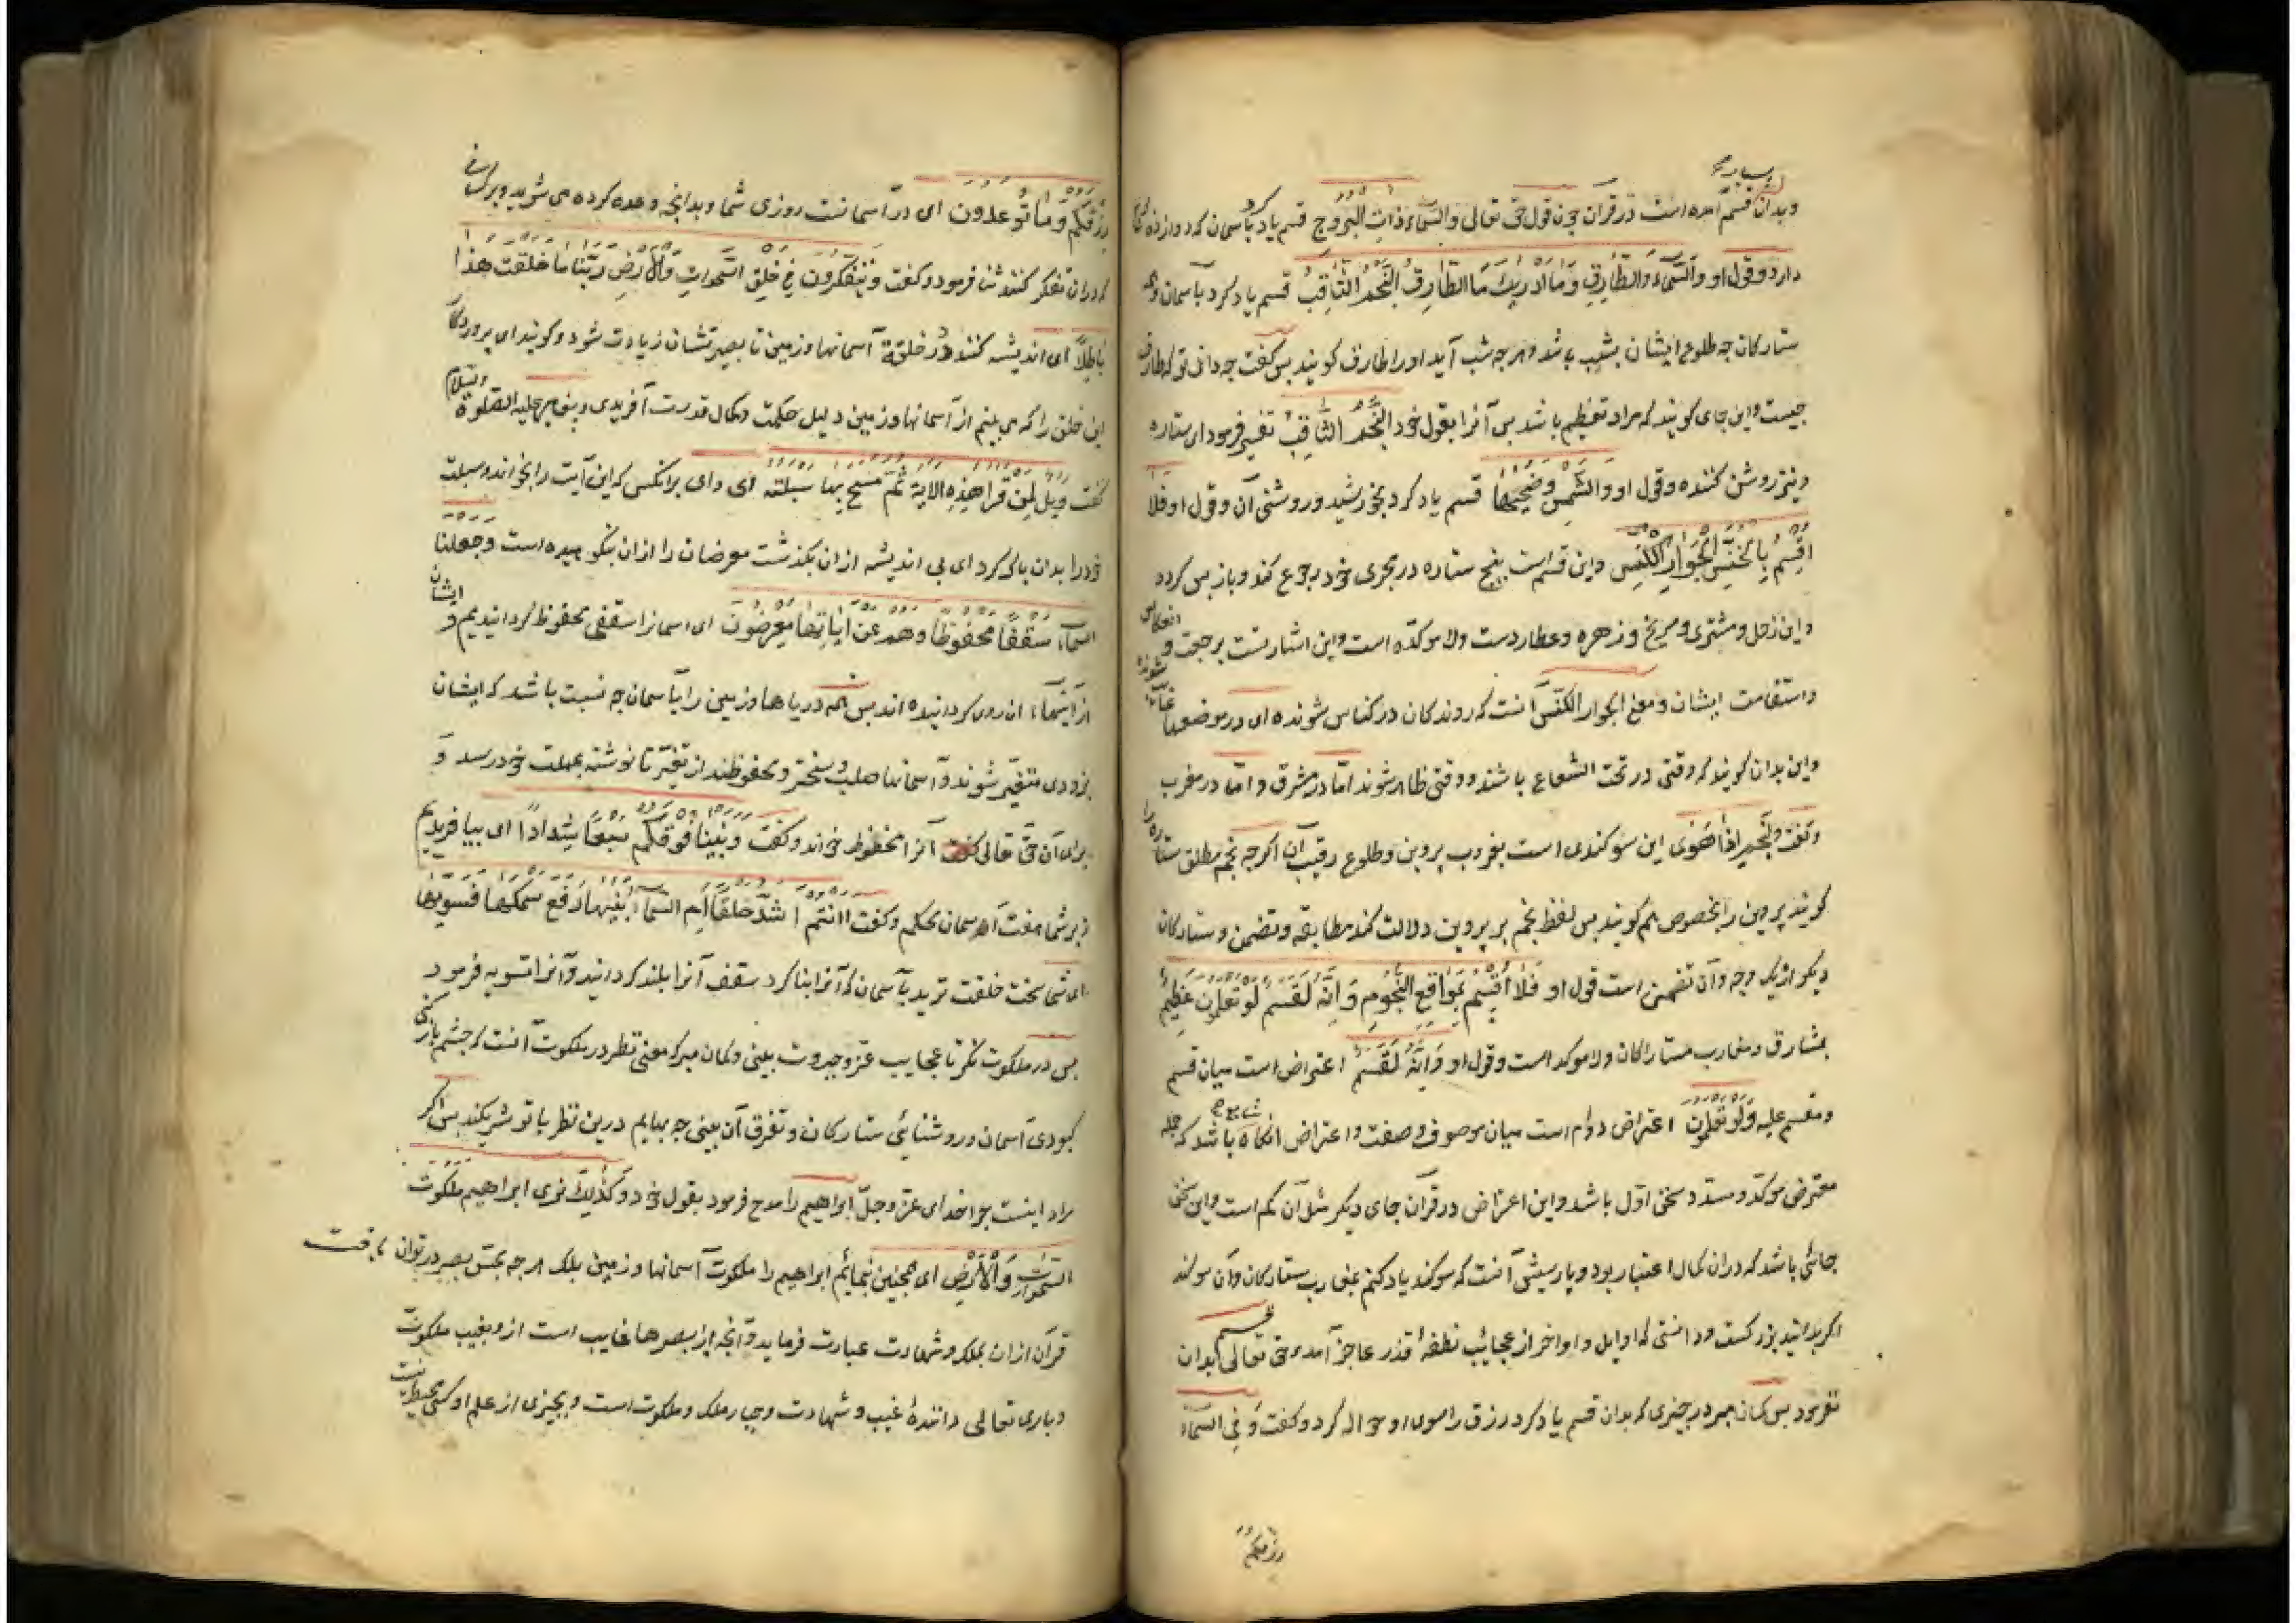 بسیار
وبدان قسم آمده است در قرآن چون قول حق تعالی والسماء ذات البروج قسم یاد کرد بآسمان که دوازده
دارد و قول او والسماء والطارق وما ادریک ما الطارق النجم الثاقب قسم یاد کرد بآسمان و
ستارکان چه طلوع ایشان بشب باشد و هر چه شب آید او را طارق کویند بس کفت چه دانی تو که طارق
چیست و این جای کویند که مراد تعظیم باشد بس آنرا بقول خود النجم الثاقب تفسیر فرمود ای ستاره
و نیز روشن کننده و قول او والشمس وضحیها قسم یاد کرد بخورشید و روشنی آن و قول او فلا
اقسم بالخنس الجوار الکنس و این قسم است بپنج ستاره در مجری خود رجوع کند و باز بس کردد
و این زحل و مشتری و مریخ و زهره و عطاردست ولا موکده است و این اشارتست برجعت و انعکاس
واستقامت ایشان و معنی الجوار الکنس آنست که روندکان در کناس شونده ای در موضعها غایب شونده
و این بدان کویند که وقتی در تحت الشعاع باشند و وقتی ظاهر شوند اما در مشرق و اما در مغرب
و کفت والنجم اذا هوی این سوکندی است بغروب پروین و طلوع رقیب آن اکر چه نجم مطلق ستاره را
کویند پروین را بخصوص هم کویند بس لفظ نجم بر پروین دلالت کند مطابقه و تضمن و ستارکان
دیکر از یک وجه و آن تضمن است قول او فلا اقسم بمواقع النجوم وانه لقسم لو تعلمون عظیم
بمشارق و مغارب ستارکان ولا موکد است و قول او وانه لقسم اعتراض است میان قسم
و مقسم علیه و لو تعلمون اعتراض دوم است میان موصوف و صفت و اعتراض آنکاه باشد که جمله
معترض موکد و مسدد سخن اول باشد و این اعتراض در قرآن جای دیکر مثل آن کم است و این سخن
جائی باشد که در آن کمال اعتبار بود و پارسیش آنست که سوکند یاد کنم یعنی رب ستارکان و آن سوکند
اکر بدانید بزرکست و دانستی که اوایل و اواخر از عجایب نطفه قذر عاجز آمده حق تعالی بدان قسم
نفرمود بس کمان مبر در چیزی که بدان قسم یاد کرد رزق را سوی او حواله کرد و کفت و فی السماء
رزقکم
رزقکم وما توعدون ای در آسمانست روزی شما و بدانچه وعده کرده می شوید و بر کسانی
که در آن تفکر کنند ثنا فرمود و کفت ویتفکرون فی خلق السموات والارض ربنا ما خلقت هذا
باطلا ای اندیشه کنند در خلقة آسمانها و زمین تا بصیرتشان زیادت شود و کویند ای پروردکار
این خلق را که می بینم از آسمانها و زمین دلیل حکمت و کمال قدرت آفریدی و پیغامبر علیه الصلوة والسلام
کفت ویل لمن قرا هذه الایة ثم مسح بها سبلته ای وای بر آنکس که این آیت را بخواند و سبلت
خود را بدان پاک کرد ای بی اندیشه از آن بکذشت معرضان را از آن نکوهیده است وجعلنا
السماء سقفا محفوظا وهم عن آیاتها معرضون ای آسمانرا سقفی محفوظ کردانیدیم و ایشان
از آیتها آن روی کردانیده اند بس همه دریاها و زمین را بآسمان چه نسبت باشد که ایشان
بزودی متغیر شوند و آسمانها صلب و سخت و محفوظند از تغیر تا نوشته بمهلت خود رسد و
برای آن حق تعالی آنرا محفوظ خواند و کفت وبنینا فوقکم سبعا شدادا ای بیافریدیم
زبر شما هفت آسمان محکم و کفت اانتم اشد خلقا ام السماء بنیها رفع سمکها فسویها
ای شما سخت خلقت ترید یا آسمان که آنرا بنا کرد سقف آنرا بلند کردانید و آنرا تسویه فرمود
بس در ملکوت نکر تا عجایب عز و جبروت بینی و کمان مبر که معنی نظر در ملکوت آنست که چشم باز کنی
کبودی آسمان و روشنائی ستارکان و تفرق آن بینی چه بهایم درین نظر با تو شریکند بس اکر
مراد اینست چرا خدای عز و جل ابراهیم را مدح فرمود بقول خود وکذلک نری ابراهیم ملکوت
السموات والارض ای همچنین بنمائیم ابراهیم را ملکوت آسمانها و زمین بلک هر چه بحس بصر در توان یافت
قرآن از آن بملک و شهادت عبارت فرماید و آنچه از بصرها غایب است ازو بغیب ملکوت
و باری تعالی داننده غیب و شهادت و جبار ملک و ملکوت است و بچیزی از علم او کسی محیط نیست